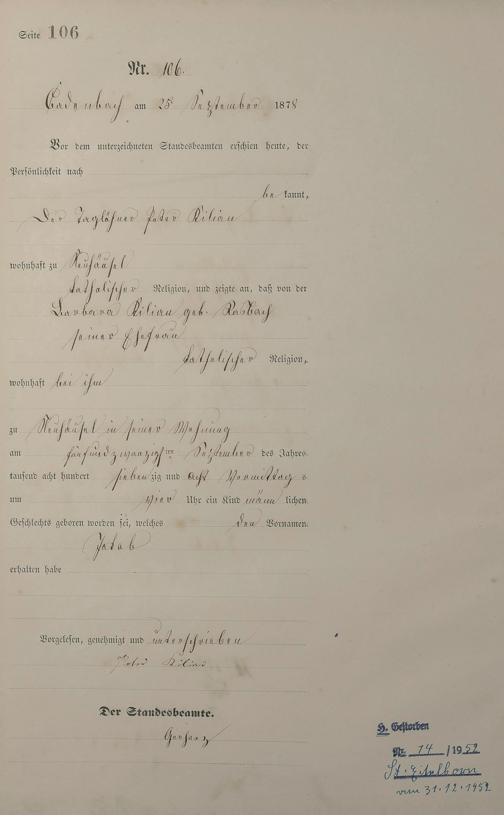 Seite 106
Nr. 106.
Cadenbach am 25 September 1878
Vor dem unterzeichneten Standesbeamten erschien heute, der
Persönlichkeit nach
be kannt,
Der Taglöhner Peter Kilian
wohnhaft zu Neuhäusel
katholischer Religion, und zeigte an, daß von der
Barbara Kilian geb. Rasbach
seiner Ehefrau
katholischer Religion,
wohnhaft bei ihm
zu Neuhäusel in seiner Wohnung
am fünfundzwanzigsten September des Jahres
tausend acht hundert siebenzig und acht Vormittags
um vier Uhr ein Kind männlichen
Geschlechts geboren worden sei, welches den Vornamen
Jakob
erhalten habe
Vorgelesen, genehmigt und unterschrieben
Peter Kilian
Der Standesbeamte.
H. Gestorben
Nr. 14 /1952
St: Eitelborn
vom 31.12.1952